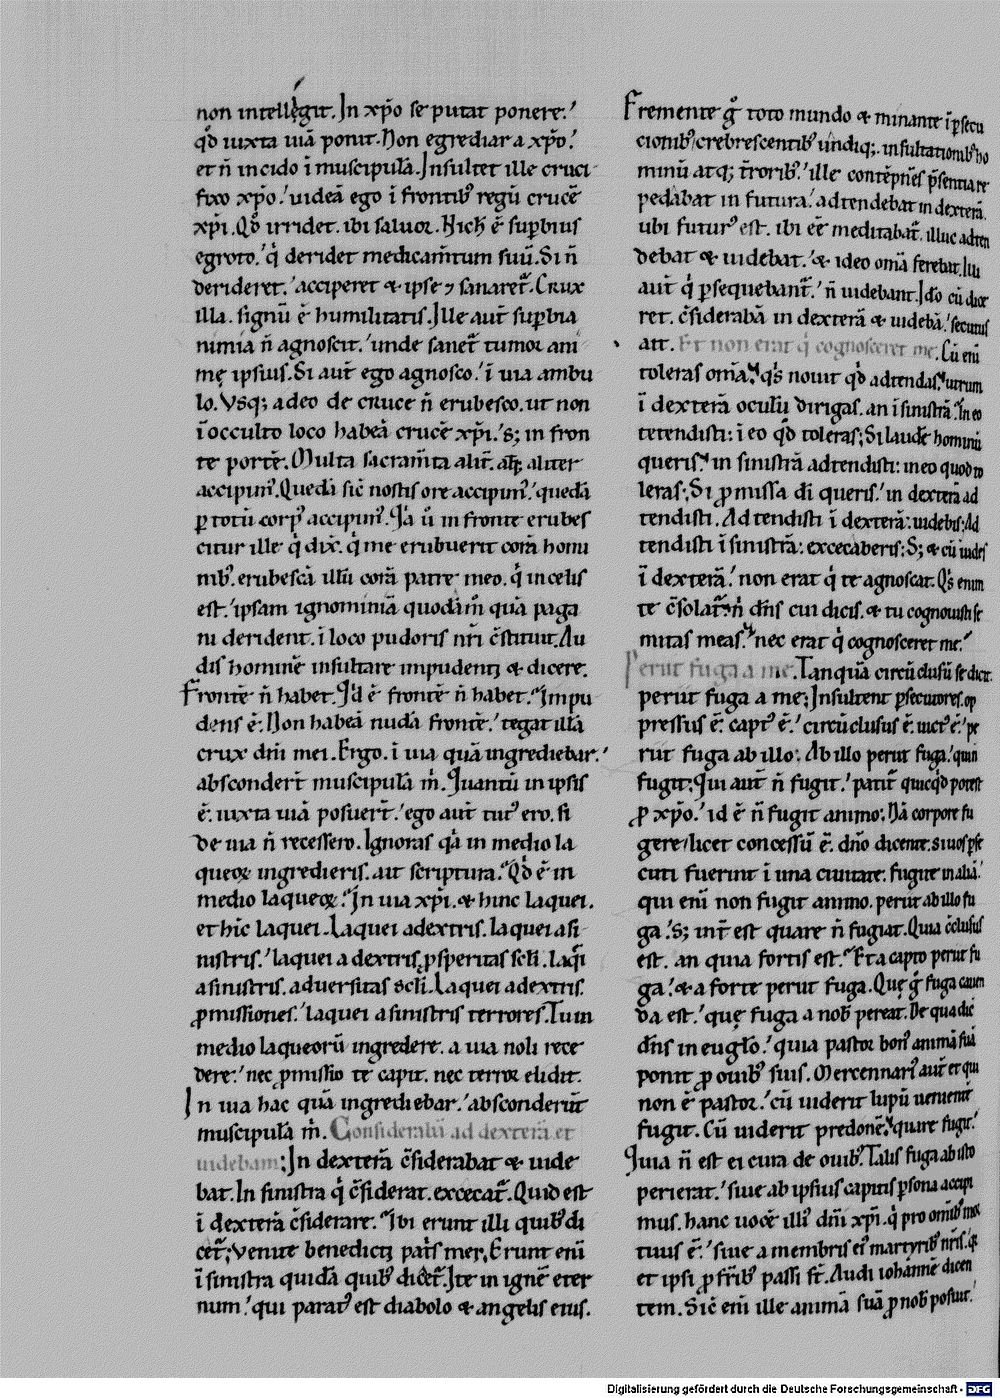 non intellegit. In xp̄o se putat ponere.
qd̄ iuxta uiā ponit. Non egrediar a xp̄o.
et n̄ incido ī muscipulā. Insultet ille cruci
fixo xp̄o. uideā ego ī frontib; regū crucē
xp̄i. Qd̄ irridet. ibi saluor. Nichil ē supbius
egroto. q̇ deridet medicam̄tum suū. Si n̄
derideret. acciperet & ipse ⁊ sanaret᷑. Crux
illa. signū ē humilitatis. Ille aut̄ supbia
nimia n̄ agnoscit. unde sanet᷑ tumor ani
mę ipsius. Si aut̄ ego agnosco. ī uia ambu
lo. Vsq; adeo de cruce n̄ erubesco. ut non
ī occulto loco habeā crucē xp̄i. s; in fron
te portē. Multa sacram̄ta alit̄. atq; aliter
accipim᷒. Quedā sic̄ nostis ore accipim᷒. quedā
p totū corp᷒ accipim᷒. Qa u̇ in fronte erubes
citur ille q̇ dix̄. q̇ me erubuerit corā homi
nib;. erubescā illū corā patre meo. q̇ in celis
est. ipsam ignominiā quodām̄ quā paga
ni derident. ī loco pudoris nr̄i c̄stituit. Au
dis hominē insultare impudenti & dicere.
Frontē n̄ habet. Qd̄ ē frontē n̄ habet. Impu
dens ē. Non habeā nudā frontē. tegat illā
crux dn̄i mei. Ergo. ī uia quā ingrediebar.
absconder̄t muscipulā m̄. Quantū in ipsis
ē. iuxta uiā posuer̄t. ego aut̄ tut᷒ ero. si
de uia n̄ recessero. Ignoras qa in medio la
queoꝝ ingredieris. ait scriptura. Qd̄ ē in
medio laqueoꝝ. In uia xp̄i. & hinc laquei.
et hīc laquei. Laquei a dextris. laquei a si
nistris. laquei a dextris, psperitas scl̄i. laq̇i
a sinistris. aduersitas scl̄i. Laquei a dextris.
pmissiones. laquei a sinistris terrores. Tu in
medio laqueorū ingredere. a uia noli rece
dere. nec pmissio te capit. nec terror elidit.
In uia hac quā ingrediebar. absconderūt
muscipulā m̄. Considerabā ad dexterā et
uidebam; In dexterā c̄siderabat & uide
bat. In sinistra q̇ c̄siderat. excecat᷑. Quid est
ī dexterā c̄siderare. Ibi erunt illi quib; di
cet᷑; Venite benedicti pat̄s mei; Erunt enī
ī sinistra quidā quib; dicet᷑. Ite in ignē eter
num. qui parat᷒ est diabolo & angelis eius.
Fremente g̊ toto mundo & minante ī psecu
cionib; crebrescentib; undiq;. insultationib; ho
minū atq; t̄rorib;. ille contēpnēs p̄sentia re
pedabat in futura. adtendebat in dexterā.
ubi futur᷒ est. ibi eē meditabat᷑. illuc adten
debat & uidebat. & ideo om̄a ferebat. Illi
aut̄ q̇ psequebant᷑. n̄ uidebant. Ido cū dice
ret. c̄siderabā in dexterā & uidebā. secutus
ait. Et non erat q̇ cognosceret me. Cū enī
toleras om̄a. q̇s nouit qd̄ adtendas. utrum
ī dexterā oculū dirigas. an ī sinistrā. In eo
tetendisti: ī eo qd̄ toleras; Si laudē hominū
queris. in sinistrā adtendisti: in eo quod to
leras; Si pmissa dī queris. in dexterā ad
tendisti. Adtendisti ī dexterā: uidebis; Ad
tendisti ī sinistrā: excecaberis; S; & cū uides
ī dexterā. non erat q̇ te agnoscat. Q̇s enim
te c̄solat᷑ n̄ dn̄s cui dicis. & tu cognouisti se
mitas meas. nec erat q̇ cognosceret me.
Periit fuga a me. Tanquā circūclusū se dicit.
periit fuga a me; Insultent psecutores. op
pressus ē. capt᷒ ē. circūclusus ē. uict᷒ ē. pe
riit fuga ab illo; Ab illo periit fuga. qui n̄
fugit; Qui aut̄ n̄ fugit. patit᷑ quicqd̄ potest
p xp̄o. id ē n̄ fugit animo; Nā corpore fu
gere licet concessū ē. dn̄o dicente. si uos pse
cuti fuerint ī una ciuitate. fugite in aliā.
qui enī non fugit animo. periit ab illo fu
ga. s; int̄est quare n̄ fugiat. Quia c̄clusus
est. an quia fortis est. Et a capto periit fu
ga. & a forte periit fuga. Que g̊ fuga cauen
da est. quę fuga a nob̄ pereat. De qua dic̄
dn̄s in euglō. quia pastor bon᷒ animā suā
ponit p ouib; suis. Mercennari᷒ aut̄ et qui
non ē pastor. cū uiderit lupū uenientē
fugit. Cū uiderit predonē. quare fugit.
Quia n̄ est ei cura de ouib;. Talis fuga ab isto
perierat. siue ab ipsius capitis psona accipi
mus. hanc uocē illi᷒ dn̄i xp̄i. q̇ pro omnib; mor
tuus ē. siue a membris ei᷒ martyrib; nr̄is. q̇
et ipsi p fr̄ib; passi st̄. Audi iohannē dicen
tem. Sic̄ enī ille animā suā p nob̄ posuit.
Digitalisierung gefördert durch die Deutsche Forschungsgemeinschaft - DFG